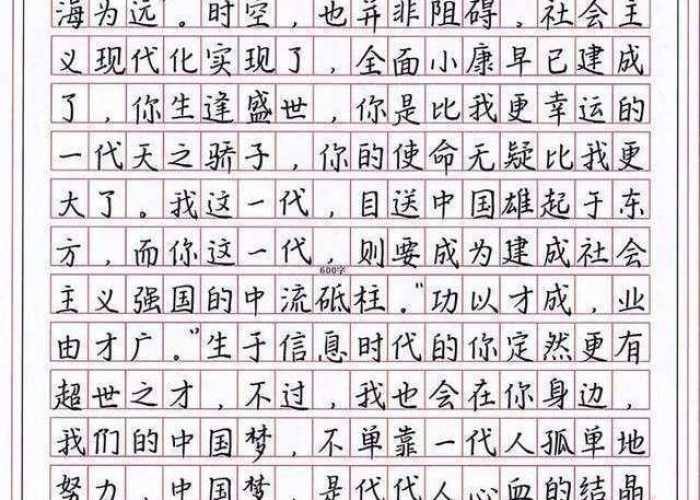 海为远”。时空，也并非阻碍。社会主
义现代化实现了，全面小康早已建成
了，你生逢盛世，你是比我更幸运的
一代天之骄子，你的使命无疑比我更
大了。我这一代，目送中国雄起于东
方，而你这一代，则要成为建成社会
600字
主义强国的中流砥柱。“功以才成，业
由才广。”生于信息时代的你定然更有
超世之才，不过，我也会在你身边，
我们的中国梦，不单靠一代人孤单地
努力，中国梦，是代代人心血的结晶